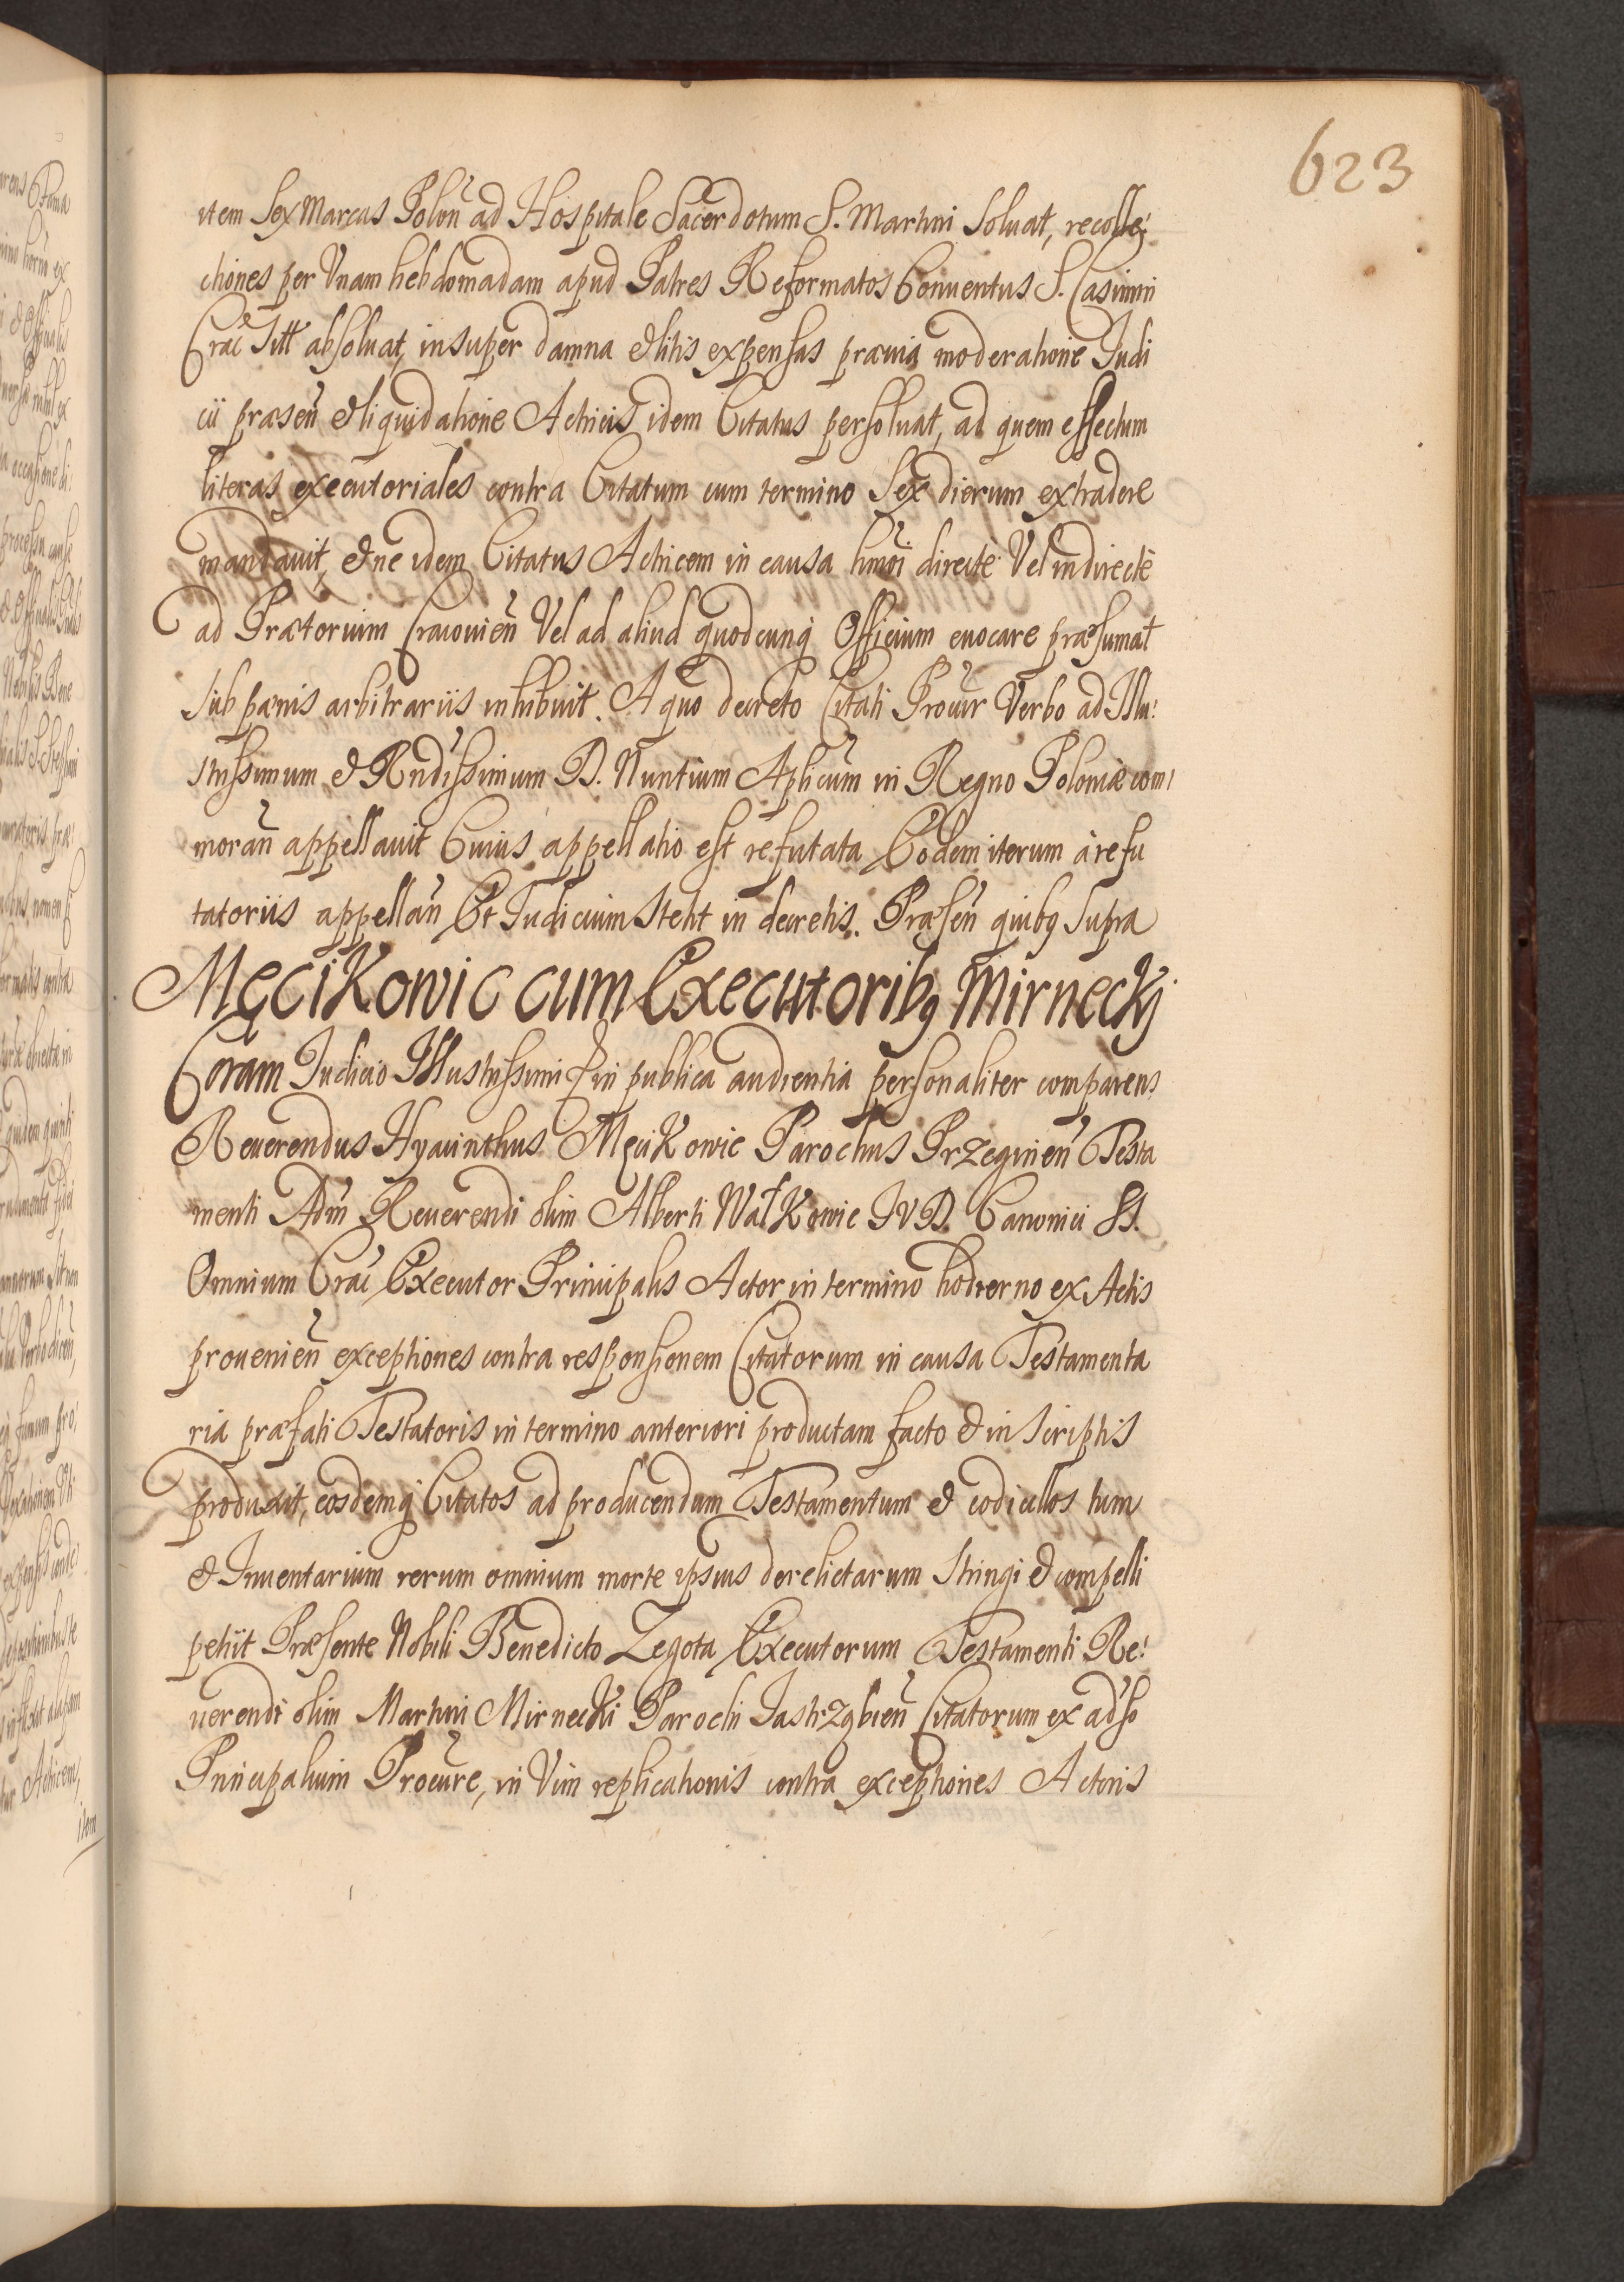 623
item Sex Marcas Polon̄ ad Hospitale Sacerdotum S. Martini Soluat, recolle-
ctiones per Vnam hebdomadam apud Patres Reformatos Conuentus S. Casimiri
Crac̄ Titt absoluat, insuper damna & litis expensas præuia moderatione Judi
cii præsen̄ & liquidatione Actricis idem Citatus persoluat, ad quem effectum
literas executoriales contra Citatum cum termino Sex dierum extradere
mandauit, & ne idem Citatus Actricem in causa hm̄oi directè Vel indirectè
ad Prætorium Cracouien̄ Vel ad aliud quodcunq̨ Officium euocare præsumat
sub pænis arbitrariis inhibuit. A quo decreto Citati Procur̄ Verbo ad Illu-
strissimum & Rndissimum D. Nuntium Aplicum in Regno Poloniæ com-
moran̄ appellauit Cuius appellatio est refutata Eodem iterum à refu
tatoriis appellan̄ Et Judicium Stetit in decretis. Præsen̄ quibq̨ Supra
Męcikowic cum Executoribq̨ Mirneckj
Coram Judicio Illustrissimi & in publica audientia personaliter comparens
Reuerendus Hyacinthus Męcikowic Parochus Przeginien̄ Testa
menti Adm̄ Reuerendi olim Alberti Wałkowic IVD. Canonici SS.
Omnium Crac̄ Executor Principalis Actor in termino hodierno ex Actis
prouenien̄ exceptiones contra responsionem Citatorum in causa Testamenta
ria præfati Testatoris in termino anteriori productam facto & in scriptis
produxit, eosdemq̨ Citatos ad producendum Testamentum & codicillos tum
& Inuentarium rerum omnium morte ipsius derelictarum Stringi & compelli
petiit Præsente Nobili Benedicto Zegota Executorum Testamenti Re-
uerendi olim Martini Mirnecki Parochi Jastrząbien̄ Citatorum ex aduso
Principalium Procure, in Vim replicationis contra exceptiones Actoris